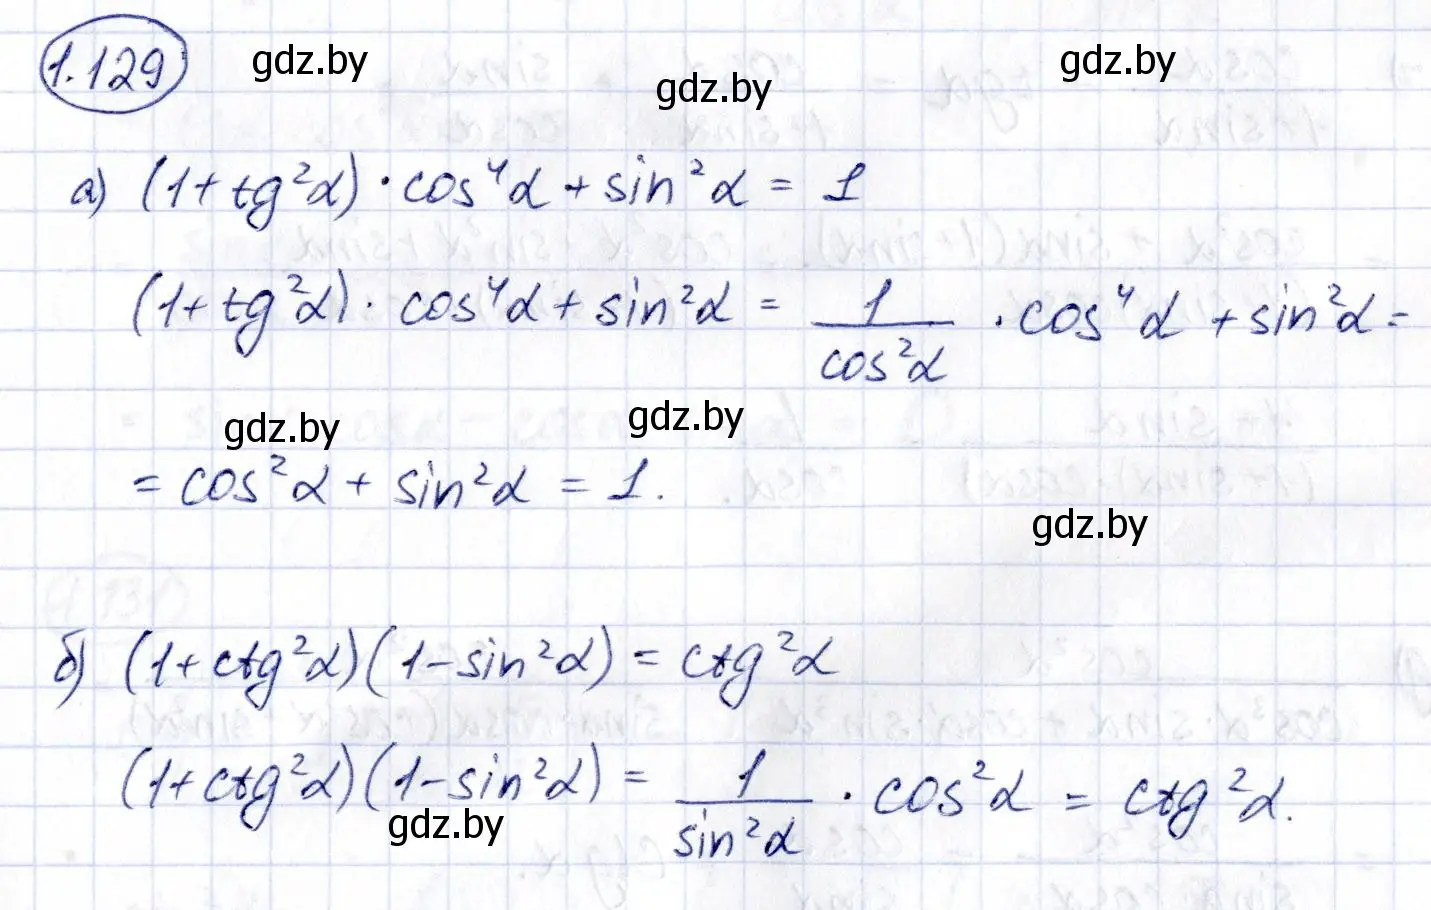 1.129
gdz.by
gdz.by
gdz.by
а) (1+tg²α)·cos⁴α+sin²α = 1
(1+tg²α)·cos⁴α+sin²α = 1/cos²α ·cos⁴α+sin²α =
gdz.by
gdz.by
= cos²α + sin²α = 1.
gdz.by
б) (1+ctg²α)(1-sin²α) = ctg²α
(1+ctg²α)(1-sin²α) = 1/sin²α · cos²α = ctg²α.
gdz.by